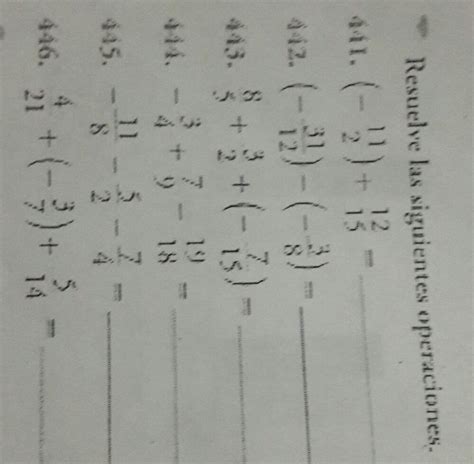 Resuelve las siguientes operaciones.
441. (- 11/2) + 12/15 =
442. (- 31/12) - (- 3/8) =
443. 8/5 + 3/2 + (- 7/15) =
444. - 3/4 + 7/9 - 19/18 =
445. - 11/8 - 5/2 - 7/4 =
446. 4/21 + (- 3/7) + 5/14 =